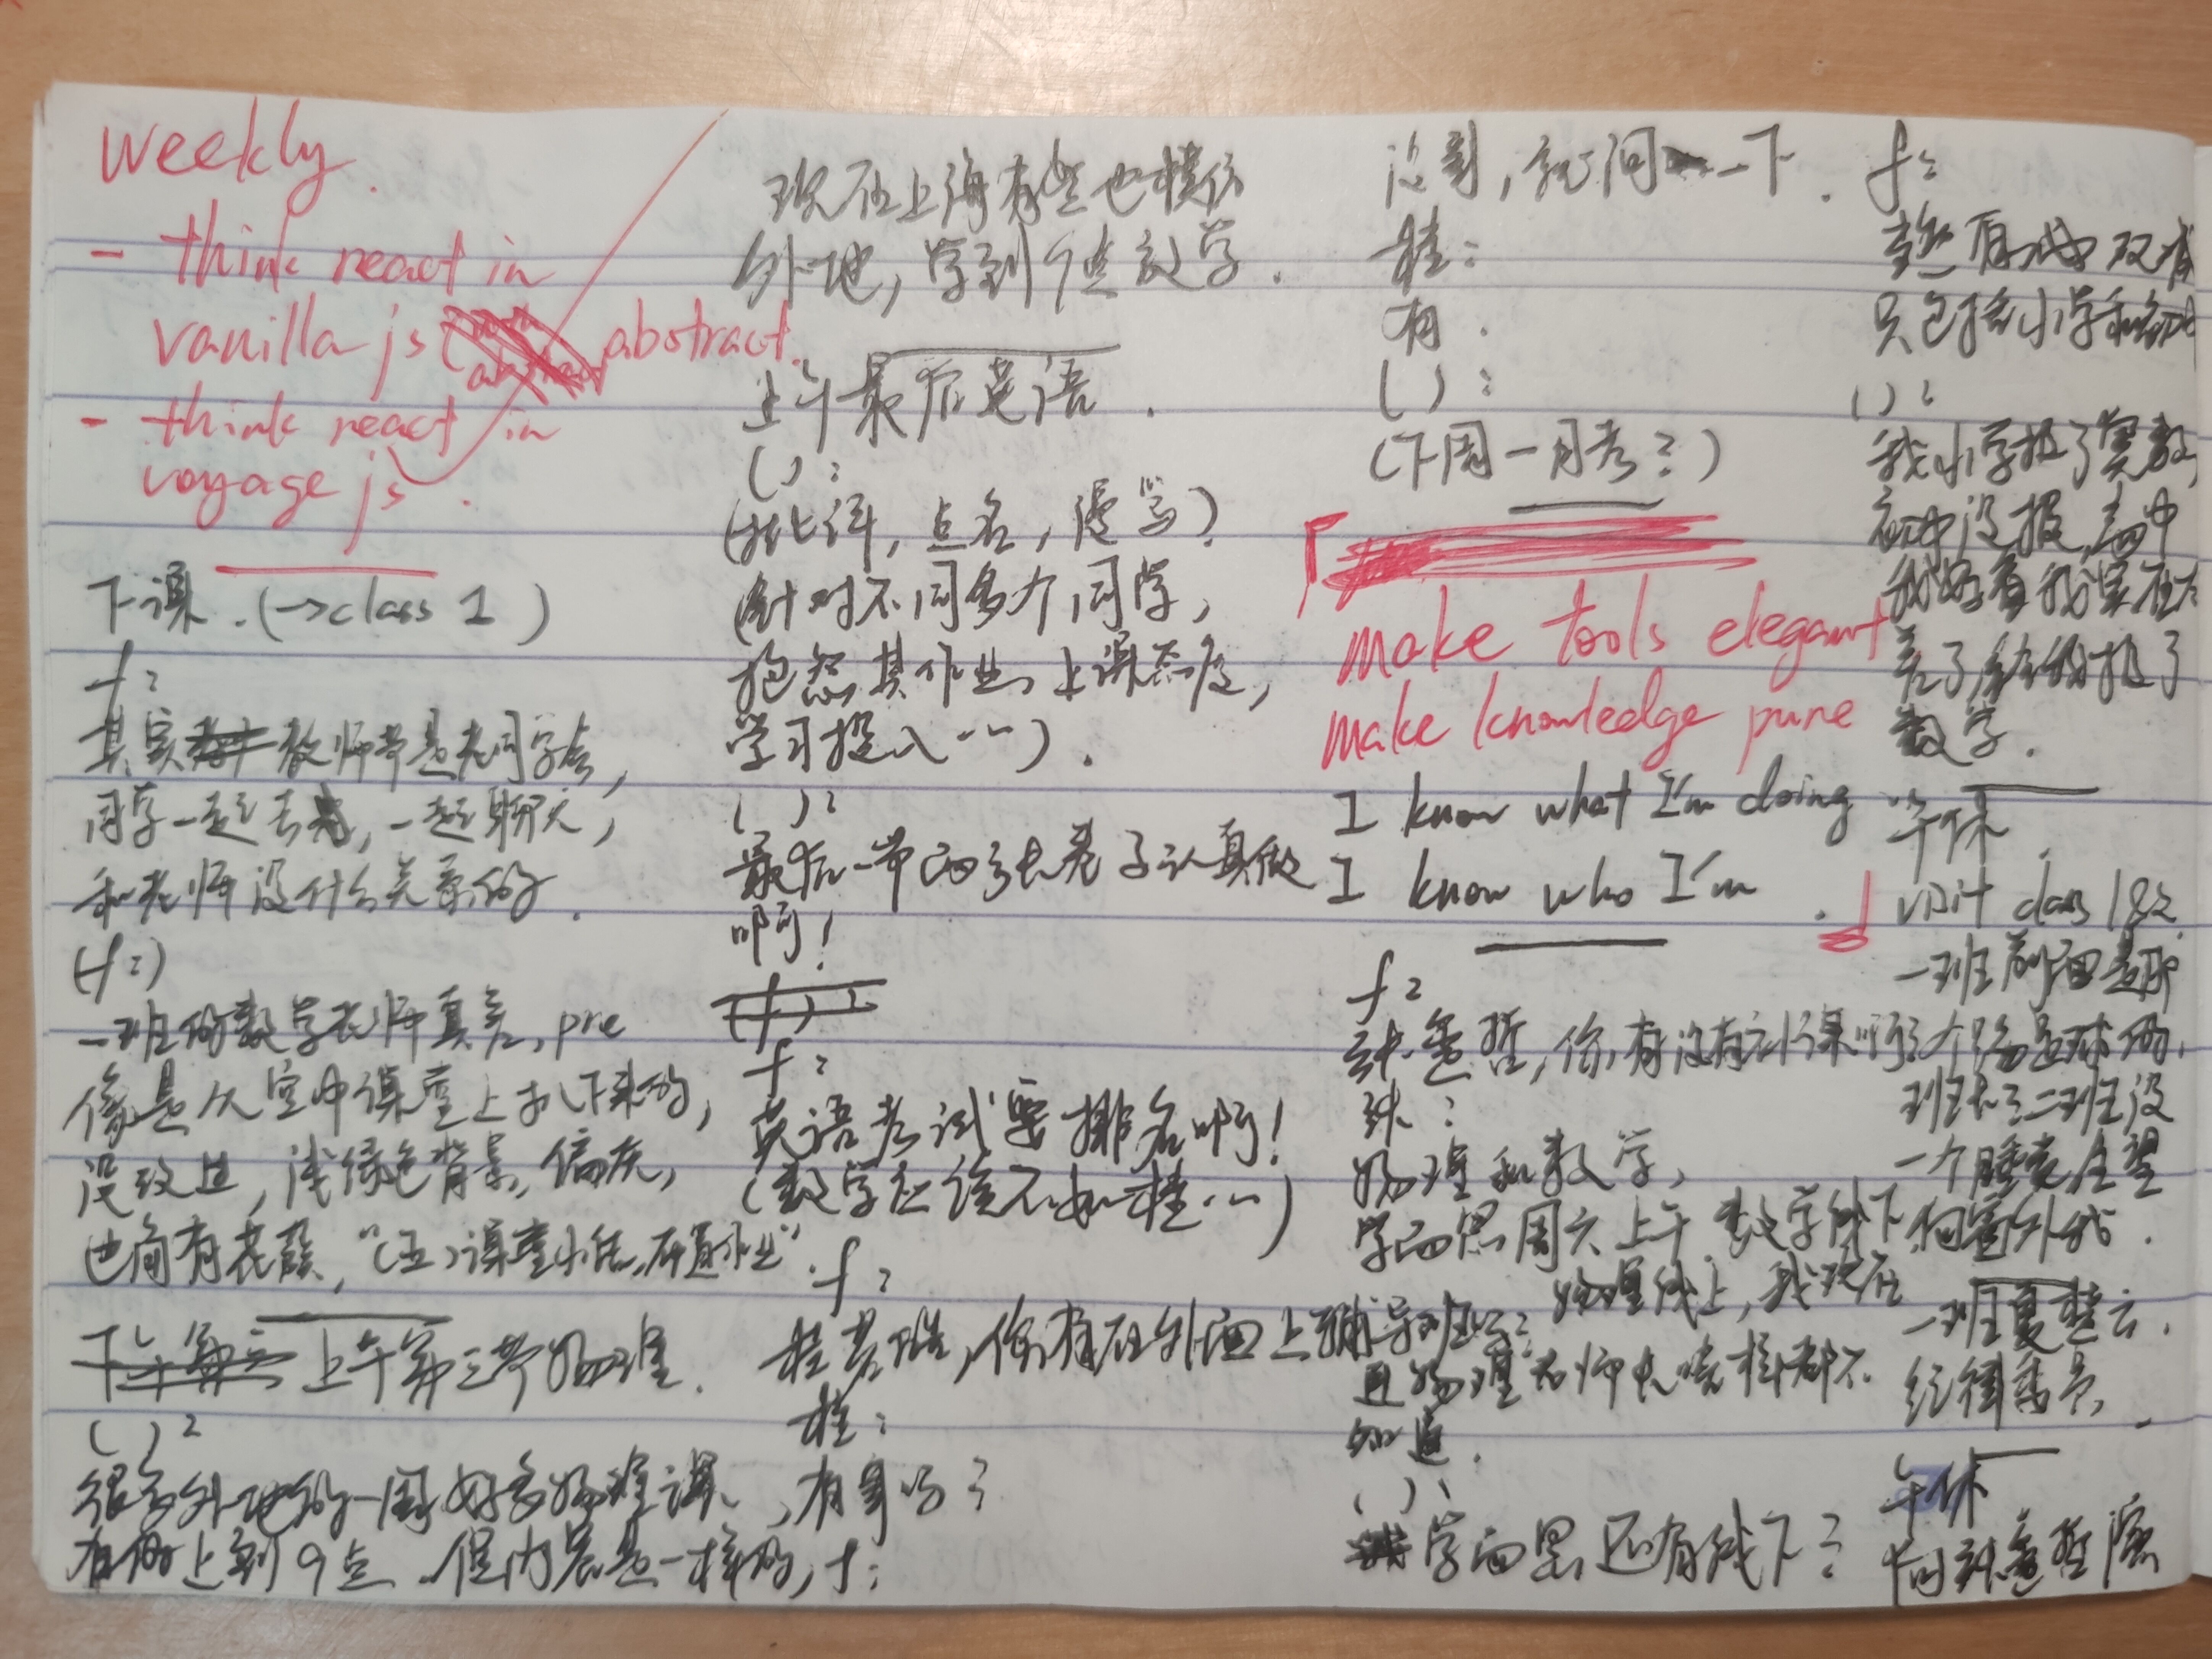 weekly.
- think react in
vanilla js abstract.
- think react in
voyage js.
下课.(→class 1)
f:
其实教师节是老同学会,
同学一起去,一起聊天,
和老师没什么关系的.
(f:)
一班的数学老师真差,pre
像是从空中课堂上扒下来的,
没改过,浅绿色背景,偏灰,
边角有花纹,"(五)课堂小结,布置作业".
上午第三节物理.
( ):
很多外地的一周好多物理课,
有的上到9点.但内容是一样的,
现在上海有些也模仿
外地,学到9点放学.
上午最后英语.
( ):
(批评,点名,漫骂)
(针对不同多个同学,
抱怨其作业、上课态度,
学习投入……).
( ):
最后一节两张卷子认真做
啊!
f:
英语考试要排名啊!
(数学应该不如桂……)
f:
你有在外面上辅导班吗?
桂:
有事吗?
f:
没事,就问一下.
桂:
有.
( ):
(下周一月考?)
「
make tools elegant
make knowledge pure
I know what I'm doing
I know who I'm.
」
f:
你有没有补课啊?
物理和数学,
学而思周六上午.数学线下
物理线上,我现在
连物理老师长啥样都不
知道.
( ):
学而思还有线下?
f:
双减
只包括小学和初中
( ):
我小学报了奥数,
初中没报,高中
差了,给我报了
数学.
午休.
visit class 1&2.
一班
个踢足球的,
二班没
一个睡着全望
向窗外我.
一班夏楚云.
纪律委员.
午休